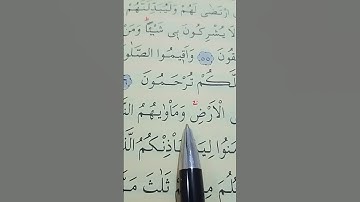 ارْتَضٰى لَهُمْ وَلَيُبَدِّلَنَّهُمْ
لَا يُشْرِكُونَ بِى شَيْـًٔا وَمَنْ
قُونَ ﴿٥٥﴾ وَاَقِيمُوا الصَّلٰو
لَّكُمْ تُرْحَمُونَ
الْاَرْضِ وَمَاْوٰيهُمُ النَّ
مَنُوا لِيَ اْذِنْكُمُ الَّ
ثَلٰثَ مَرَّ